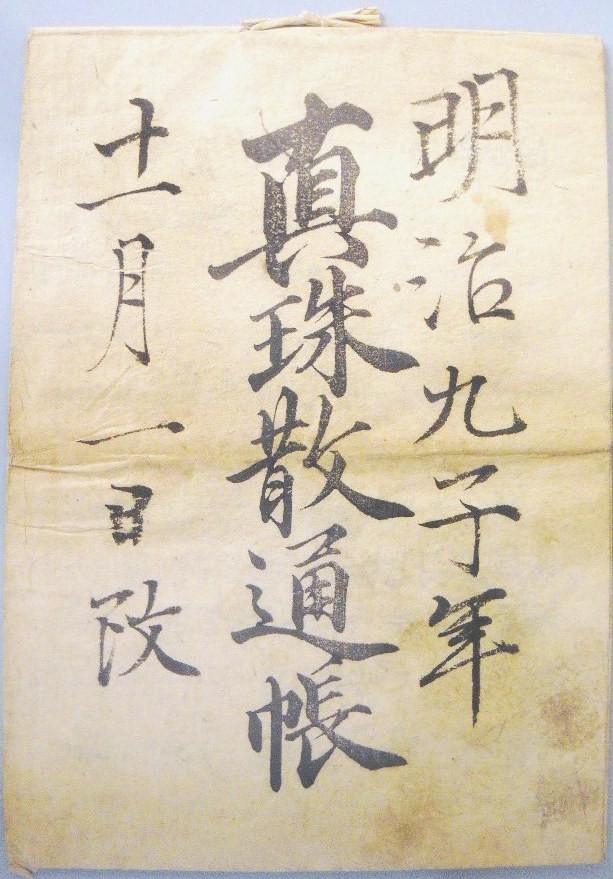 明治九子年
真珠散通帳
十一月一日改